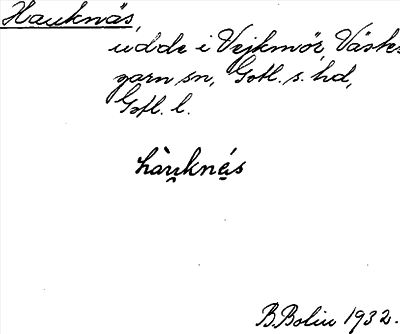 Hauknäs,
udde i Vejkmör, Väster
garn sn, Gotl. s. hd,
Gotl. l.
hàu̯knę́s
B. Bolin 1932.